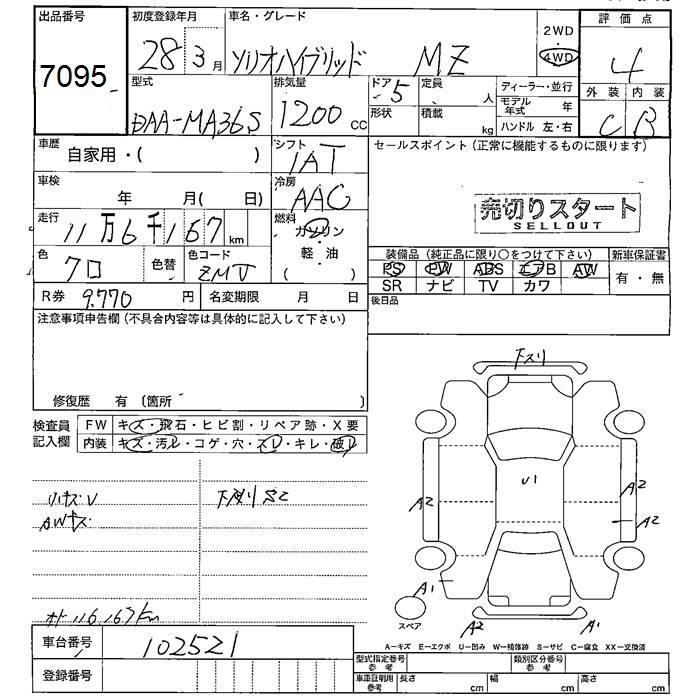 出品番号
7095
初度登録年月
28 3 月
車名・グレード
ソリオハイブリッド MZ
2WD
4WD
評価点
4
外装 内装
C B
型式
DAA-MA36S
排気量
1200 cc
ドア 5
形状
定員 人
積載 kg
ディーラー・並行
モデル年式 年
ハンドル 左・右
車歴
自家用・( )
シフト
IAT
セールスポイント (正常に機能するものに限ります)
車検
年 月( 日)
冷房
AAC
売切りスタート
SELLOUT
走行
11万6千167 km
燃料
ガソリン
・
軽・油
( )
色
クロ
色替
色コード
ZMV
装備品 (純正品に限り○をつけて下さい)
PS PW ABS エアB AW
SR ナビ TV カワ
新車保証書
有・無
R券 9.770 円
名変期限 月 日
後日品
注意事項申告欄 (不具合内容等は具体的に記入して下さい)
修復歴 有 (箇所 )
検査員
記入欄
FW キズ・飛石・ヒビ割・リペア跡・X要
内装 キズ・汚レ・コゲ・穴・スレ・キレ・破レ
AWキズ
オド116,167km
下スリ
U1
A2
A2
A2
A1
A2
A1
スペア
A－キズ E－エクボ U－凹み W－補修跡 S－サビ C－腐食 XX－交換済
車台番号 102521
登録番号
型式指定番号
参考
類別区分番号
参考
車庫証明用
参考
長さ cm
幅 cm
高さ cm